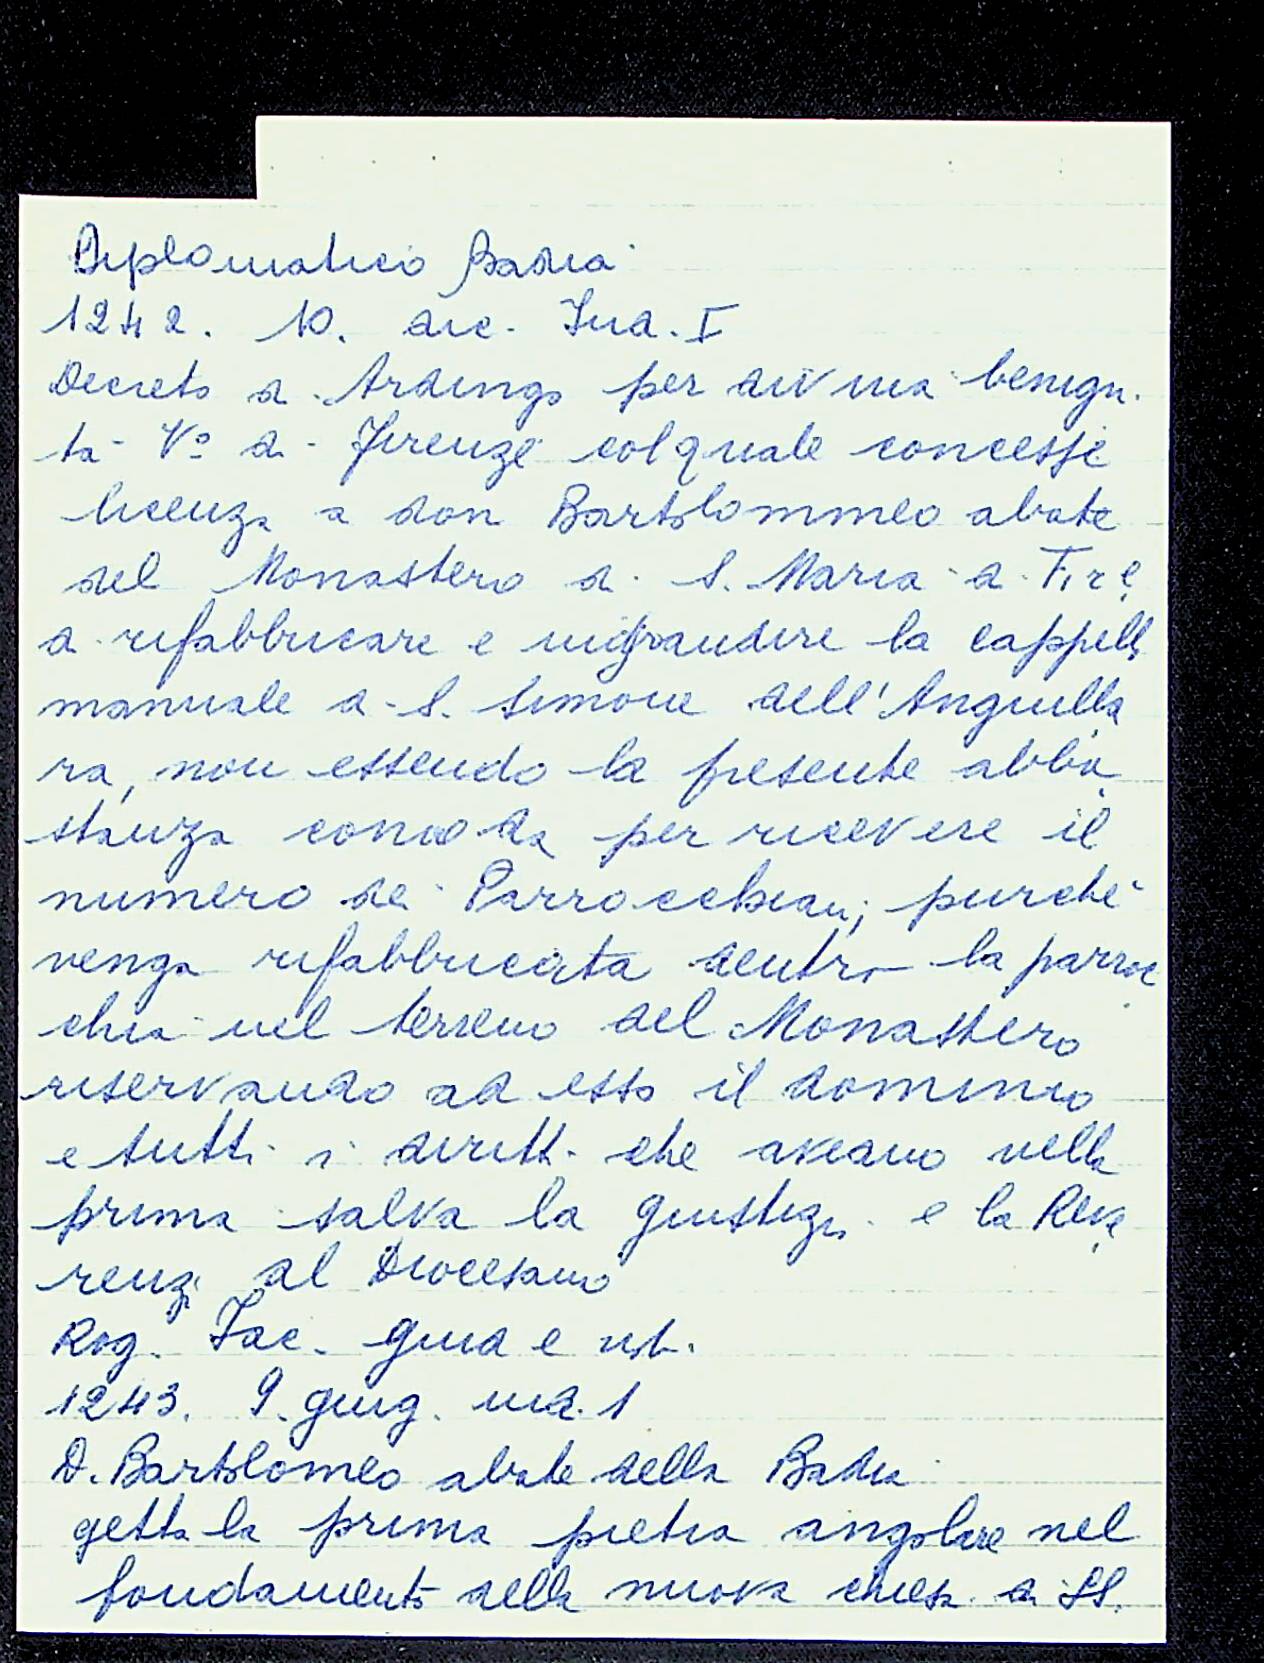 Diplomatico Badia
1242. 10. dic. Ind. I
Decreto di Ardingo per divina benign.
tà Vº di Firenze col quale concesse
licenza a don Bartolommeo abate
del Monastero di S. Maria di Fire
di rifabbricare e ingrandire la cappella
manuale di S. Simone dell'Anguilla
ra, non essendo la presente abba
stanza comoda per ricevere il
numero dei Parrocchiani, purchè
venga rifabbricata dentro la parroc
chia nel terreno del Monastero
riservando ad esso il dominio
e tutti i diritti che aveano nella
prima salva la giustizia e la Reve
renza al Diocesano
Rog. Jac. giud e not.
1243. 9. giug. ind. 1
D. Bartolomeo abate della Badia
getta la prima pietra angolare nel
fondamento della nuova chiesa di SS.